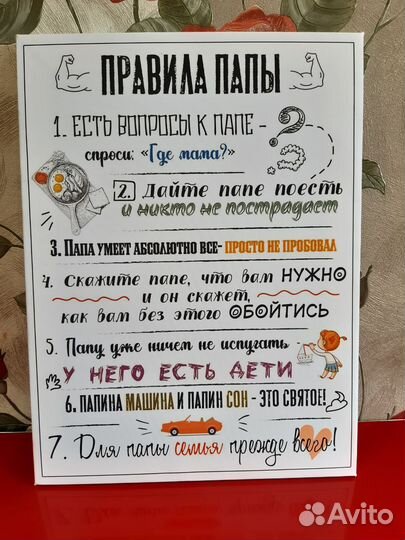 ПРАВИЛА ПАПЫ
1. ЕСТЬ ВОПРОСЫ К ПАПЕ -
спроси: «Где мама?»
2. Дайте папе поесть
и никто не пострадает
3. ПАПА УМЕЕТ АБСОЛЮТНО ВСЕ- ПРОСТО НЕ ПРОБОВАЛ
4. Скажите папе, что вам НУЖНО
и он скажет,
как вам без этого ОБОЙТИСЬ
5. Папу уже ничем не испугать
У НЕГО ЕСТЬ ДЕТИ
6. ПАПИНА МАШИНА И ПАПИН СОН - ЭТО СВЯТОЕ!
7. Для папы семья прежде всего!
Avito